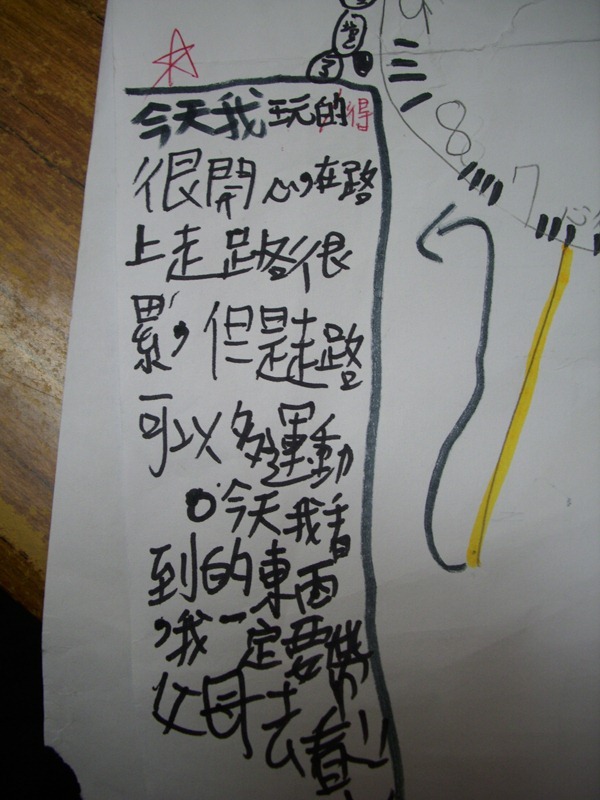 今天我玩的得
很開心,在路
上走路很
累,但是走路
可以多運動
。今天我看
到的東西
,我一定要帶
父母去看!!
8
7